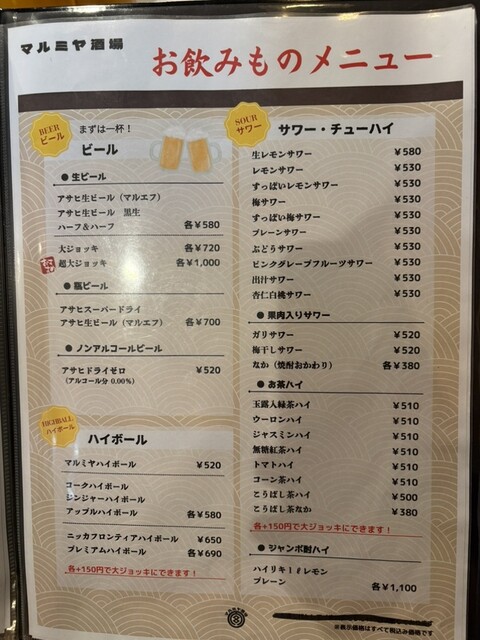 マルミヤ酒場
お飲みものメニュー
BEER
ビール
まずは一杯！
ビール
● 生ビール
アサヒ生ビール（マルエフ）
アサヒ生ビール 黒生
ハーフ＆ハーフ 各￥580
大ジョッキ 各￥720
超大ジョッキ 各￥1,000
● 瓶ビール
アサヒスーパードライ
アサヒ生ビール（マルエフ） 各￥700
● ノンアルコールビール
アサヒドライゼロ ￥520
（アルコール分 0.00%）
HIGHBALL
ハイボール
ハイボール
マルミヤハイボール ￥520
コークハイボール
ジンジャーハイボール
アップルハイボール 各￥580
ニッカフロンティアハイボール ￥650
プレミアムハイボール 各￥690
各+150円で大ジョッキにできます！
SOUR
サワー
サワー・チューハイ
生レモンサワー ￥580
レモンサワー ￥530
すっぱいレモンサワー ￥530
梅サワー ￥530
すっぱい梅サワー ￥530
プレーンサワー ￥530
ぶどうサワー ￥530
ピンクグレープフルーツサワー ￥530
出汁サワー ￥530
杏仁白桃サワー ￥530
● 果肉入りサワー
ガリサワー ￥520
梅干しサワー ￥520
なか（焼酎おかわり） 各￥380
● お茶ハイ
玉露入緑茶ハイ ￥510
ウーロンハイ ￥510
ジャスミンハイ ￥510
無糖紅茶ハイ ￥510
トマトハイ ￥510
コーン茶ハイ ￥510
こうばし茶ハイ ￥500
こうばし茶なか ￥380
各+150円で大ジョッキにできます！
● ジャンボ酎ハイ
ハイリキ1ℓレモン
プレーン 各￥1,100
※表示価格はすべて税込み価格です